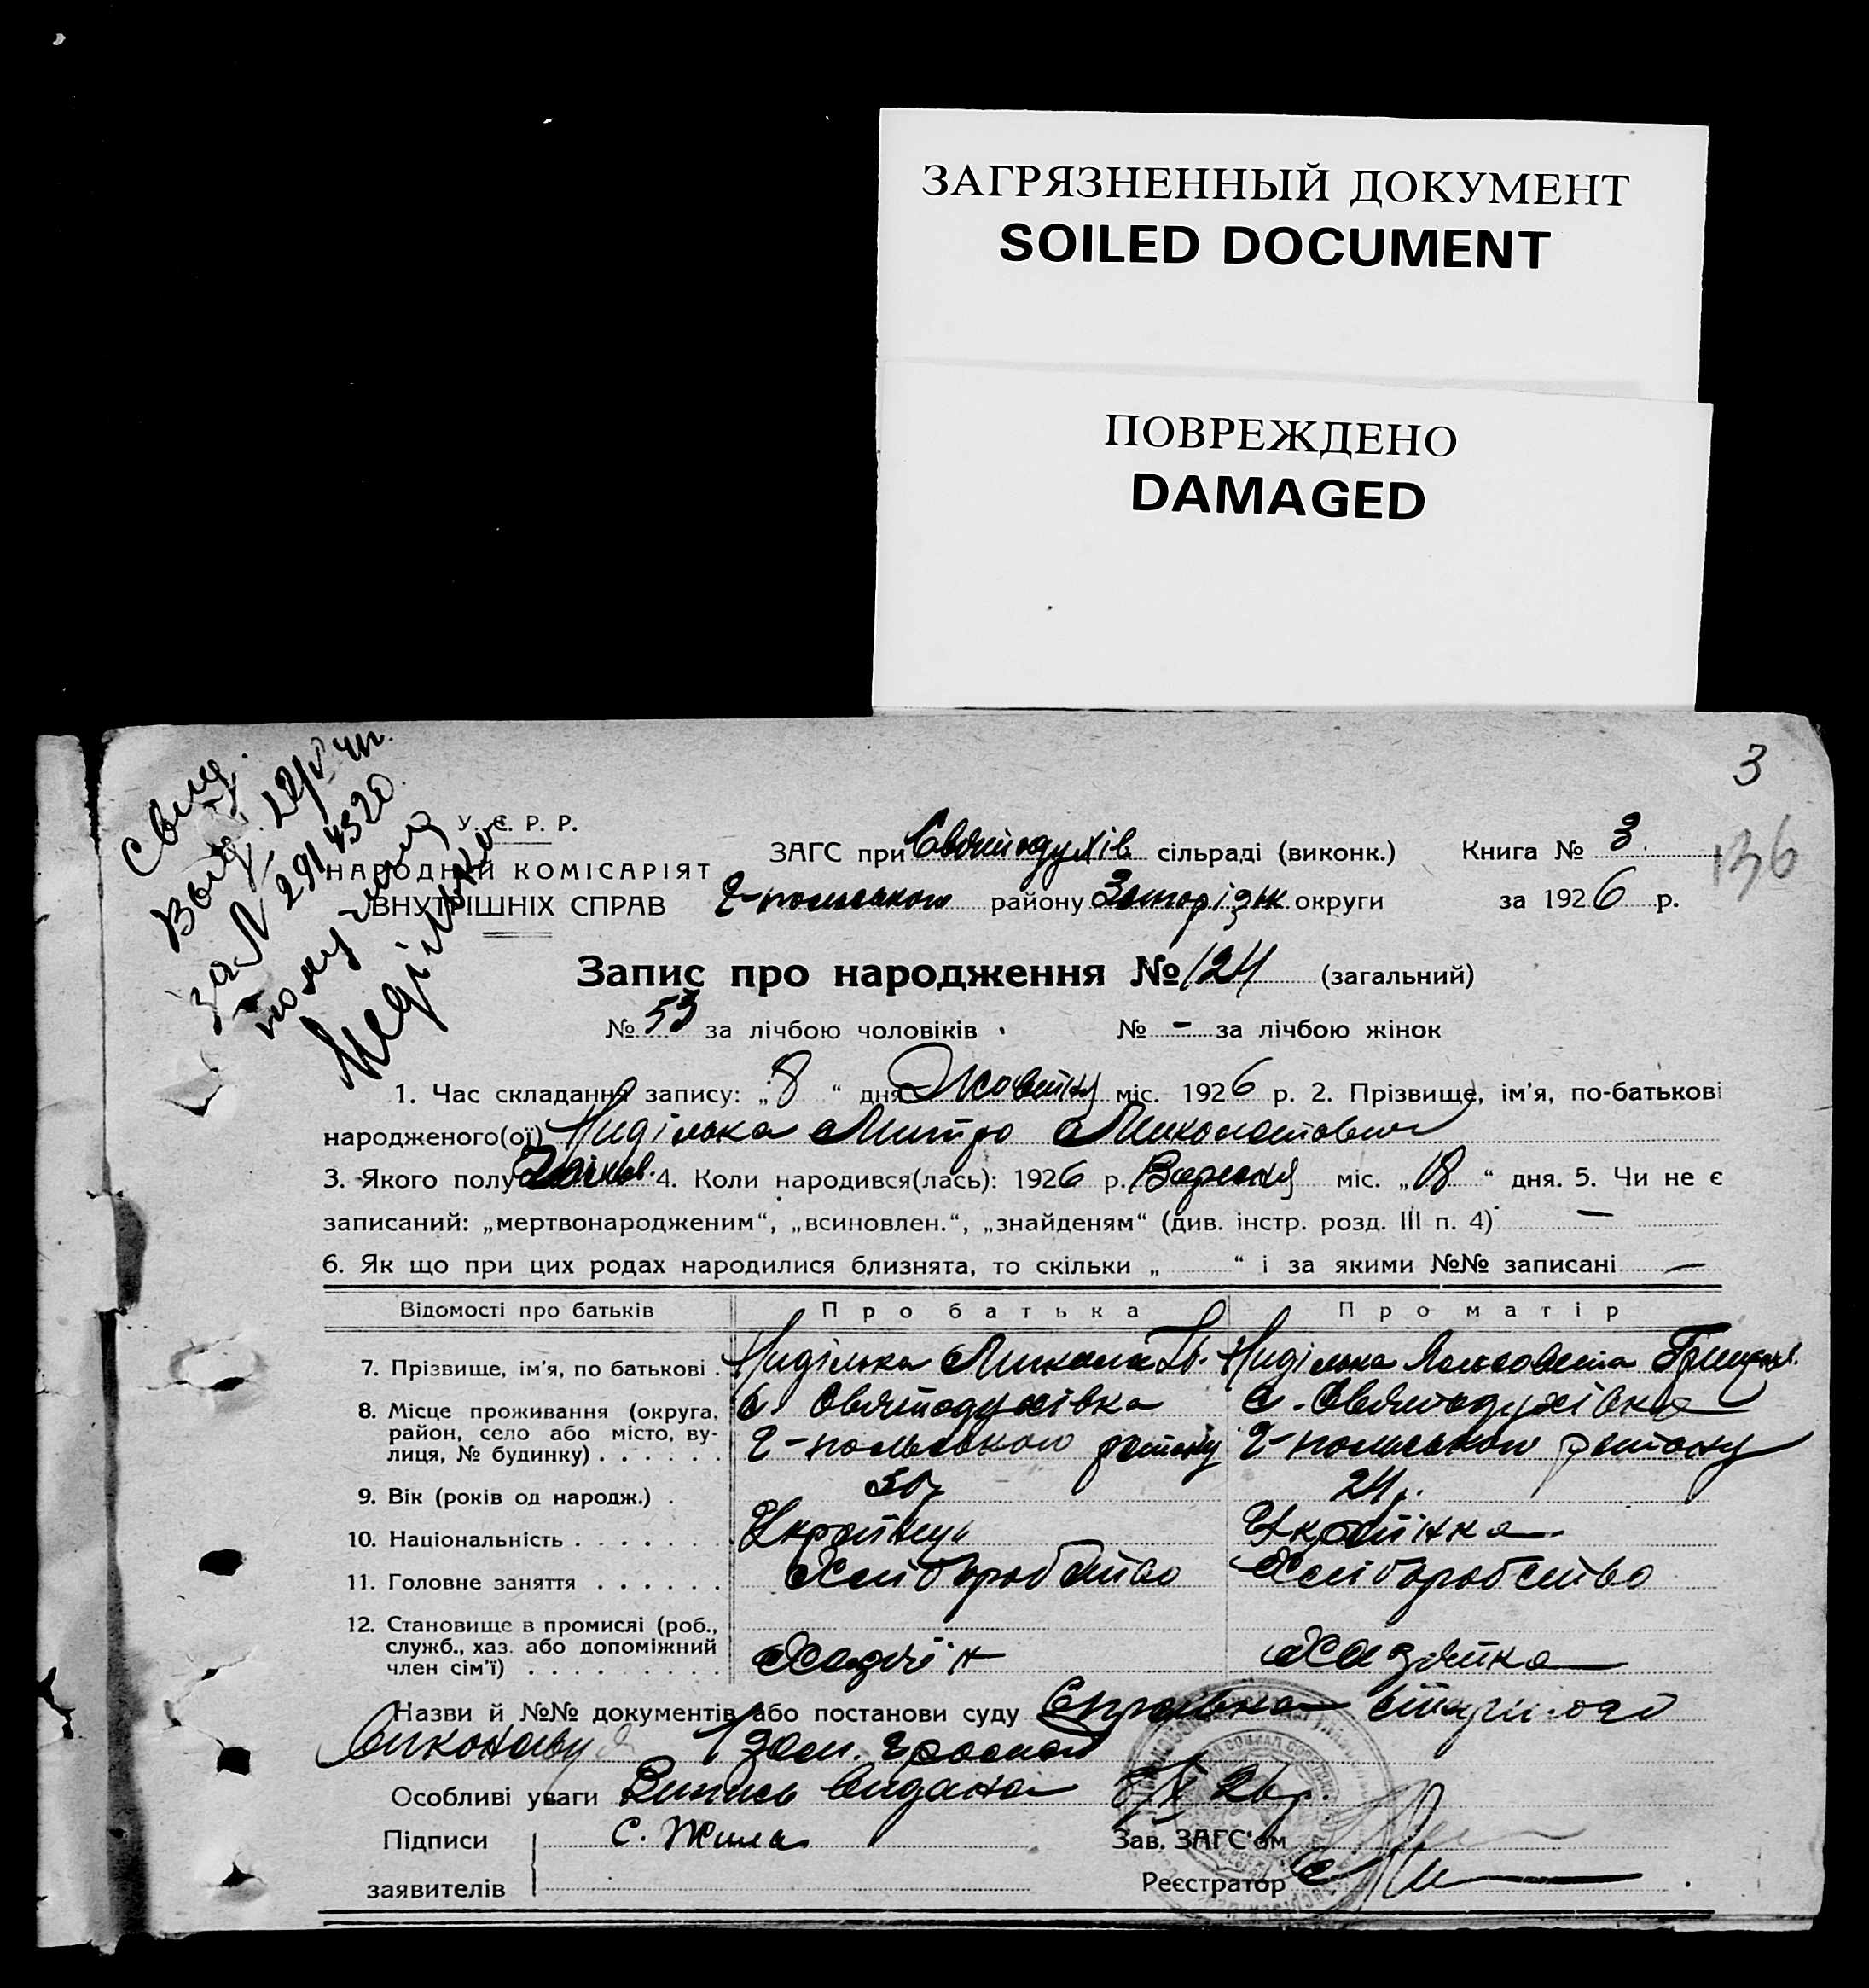 ЗАГРЯЗНЕННЫЙ ДОКУМЕНТ
SOILED DOCUMENT
ПОВРЕЖДЕНО
DAMAGED
3
136
Свид.
Выд. 22/V 41г.
за № 2914520
У. С. Р. Р.
НАРОДНІЙ КОМІСАРІЯТ
ВНУТРІШНІХ СПРАВ
ЗАГС при Святодухів сільраді (виконк.) Книга № 3.
району Запоріжк округи за 1926 р.
Запис про народження № 124 (загальний)
№ 53 за лічбою чоловіків № – за лічбою жінок
1. Час складання запису: „8“ дня Жовтня міс. 1926 р. 2. Прізвище, ім'я, по-батькові
народженого(ої) Ниділька Митро Миколаєвич
3. Якого полу Чолов. 4. Коли народився(лась): 1926 р. Вересня міс. „18“ дня. 5. Чи не є
записаний: „мертвонародженим“, „всиновлен.“, „знайденям“ (див. інстр. розд. III п. 4) —
6. Як що при цих родах народилися близнята, то скільки „ “ і за якими №№ записані —
Відомості про батьків Про батька Про матір
7. Прізвище, ім'я, по батькові . Ниділька Микола Ниділька
8. Місце проживання (округа, с. Святодухівка с. Святодухівка
район, село або місто, ву-
лиця, № будинку) . . . . . . району району
9. Вік (років од народж.) . 30 24 р.
10. Національність . . . . . . . Українець Українка
11. Головне заняття . . . . . . Хліборобство Хліборобство
12. Становище в промислі (роб.,
служб., хаз. або допоміжний
член сім'ї) . . . . . . . . . Хазяїн Хазяйка
Назви й №№ документів або постанови суду
Особливі уваги Випись видана 8/X 26 р.
Підписи С. Жила Зав. ЗАГС'ом
заявителів Реєстратор